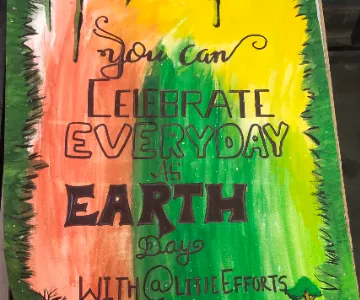 You Can
CELEBRATE
EVERYDAY
As
EARTH
Day
WITH @LISIEEFFORTS